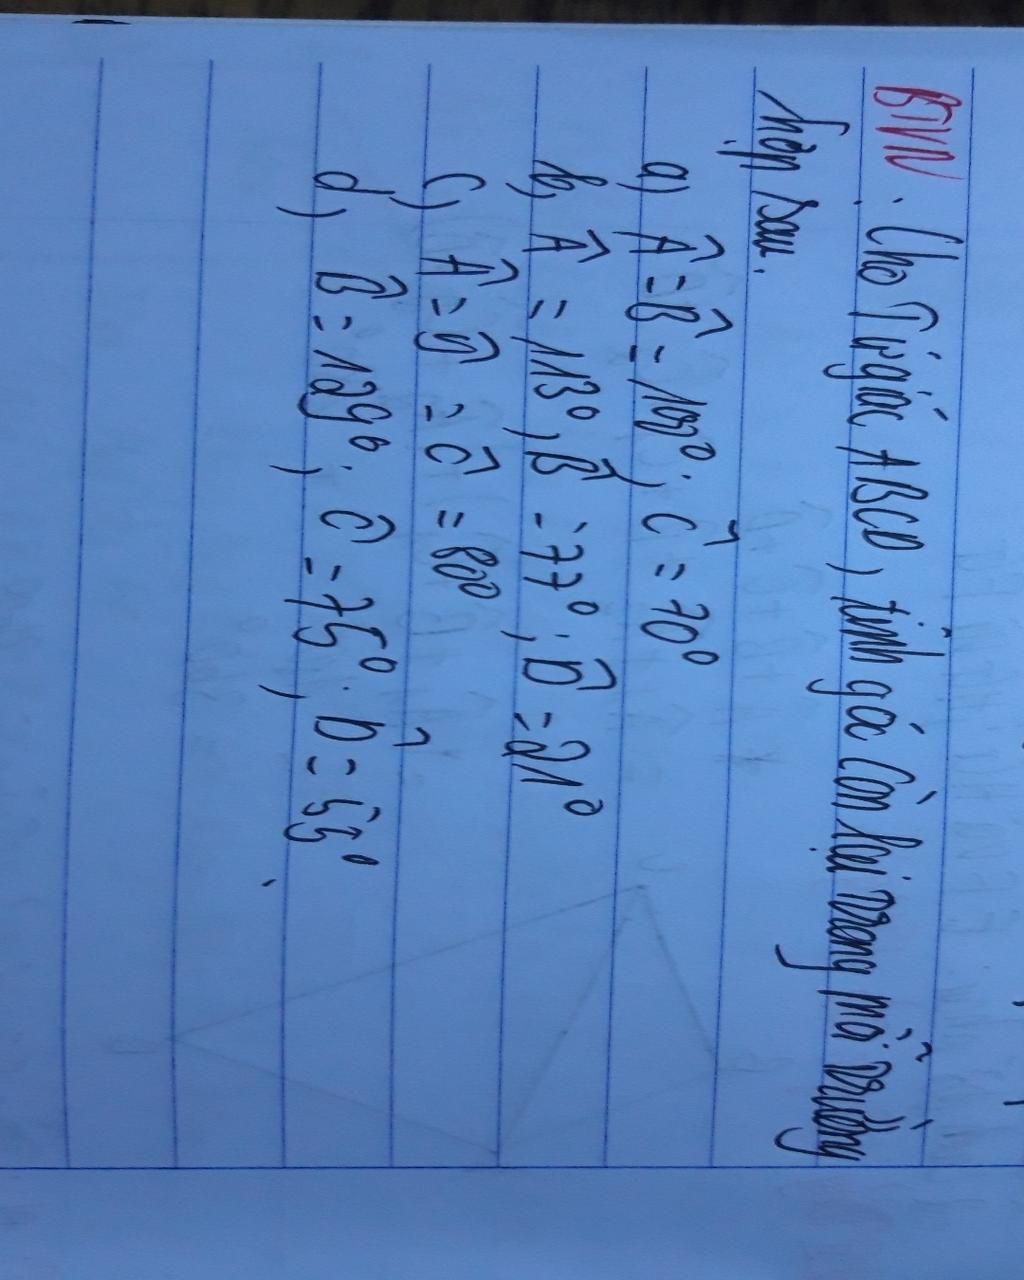 BTVN. Cho Tứ giác ABCD, tính góc còn lại trong mỗi trường
hợp sau.
a) Â = B̂ = 100°; Ĉ = 70°
b) Â = 113°, B̂ = 77°; D̂ = 21°
c) Â = B̂ = Ĉ = 80°
d) B̂ = 129°; Ĉ = 75°; D̂ = 55°